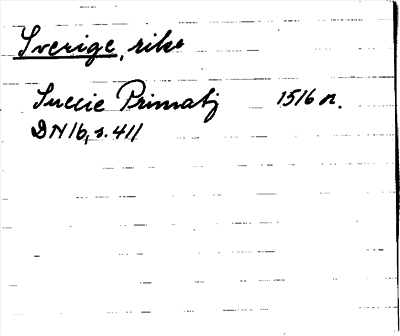 Sverige, rike
Suecie Primatj 1516 n.
DN16, s. 411